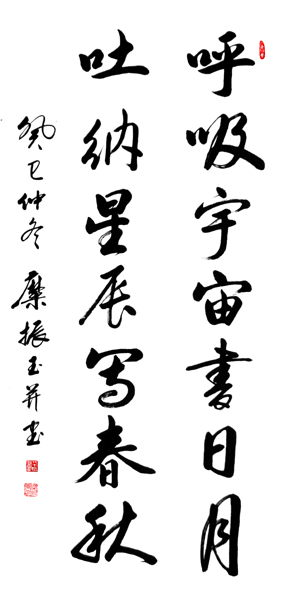 呼吸宇宙書日月
吐納星辰写春秋
癸巳仲冬 糜振玉并書